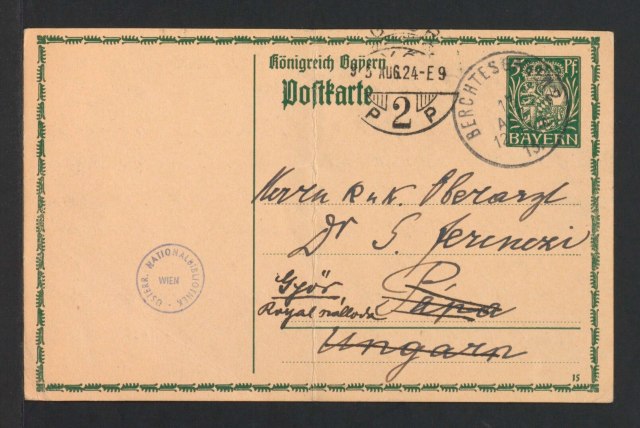 Königreich Bayern
Postkarte
5 Pf
BAYERN
BERCHTESG
AUG 24-E 9
P 2 P
Herrn k u k. Oberarzt
Dr S. Ferenczi
Győr
Pápa
Royal szálloda
Ungarn
ÖSTERR. NATIONALBIBLIOTHEK
WIEN
15